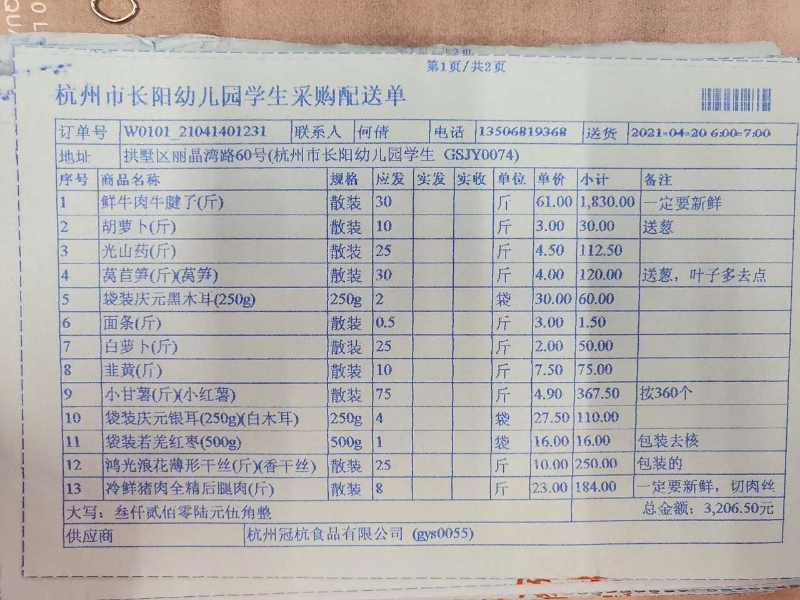 第1页/共2页
杭州市长阳幼儿园学生采购配送单
订单号 W0101_21041401231 联系人 何倩 电话 13506819368 送货 2021-04-20 6:00-7:00
地址 拱墅区丽晶湾路60号(杭州市长阳幼儿园学生 GSJY0074)
序号 商品名称 规格 应发 实发 实收 单位 单价 小计 备注
1 鲜牛肉牛腱子(斤) 散装 30 斤 61.00 1,830.00 一定要新鲜
2 胡萝卜(斤) 散装 10 斤 3.00 30.00 送葱
3 光山药(斤) 散装 25 斤 4.50 112.50
4 莴苣笋(斤)(莴笋) 散装 30 斤 4.00 120.00 送葱，叶子多去点
5 袋装庆元黑木耳(250g) 250g 2 袋 30.00 60.00
6 面条(斤) 散装 0.5 斤 3.00 1.50
7 白萝卜(斤) 散装 25 斤 2.00 50.00
8 韭黄(斤) 散装 10 斤 7.50 75.00
9 小甘薯(斤)(小红薯) 散装 75 斤 4.90 367.50 按360个
10 袋装庆元银耳(250g)(白木耳) 250g 4 袋 27.50 110.00
11 袋装若羌红枣(500g) 500g 1 袋 16.00 16.00 包装去核
12 鸿光浪花薄形干丝(斤)(香干丝) 散装 25 斤 10.00 250.00 包装的
13 冷鲜猪肉全精后腿肉(斤) 散装 8 斤 23.00 184.00 一定要新鲜，切肉丝
大写：叁仟贰佰零陆元伍角整 总金额：3,206.50元
供应商 杭州冠杭食品有限公司 (gys0055)